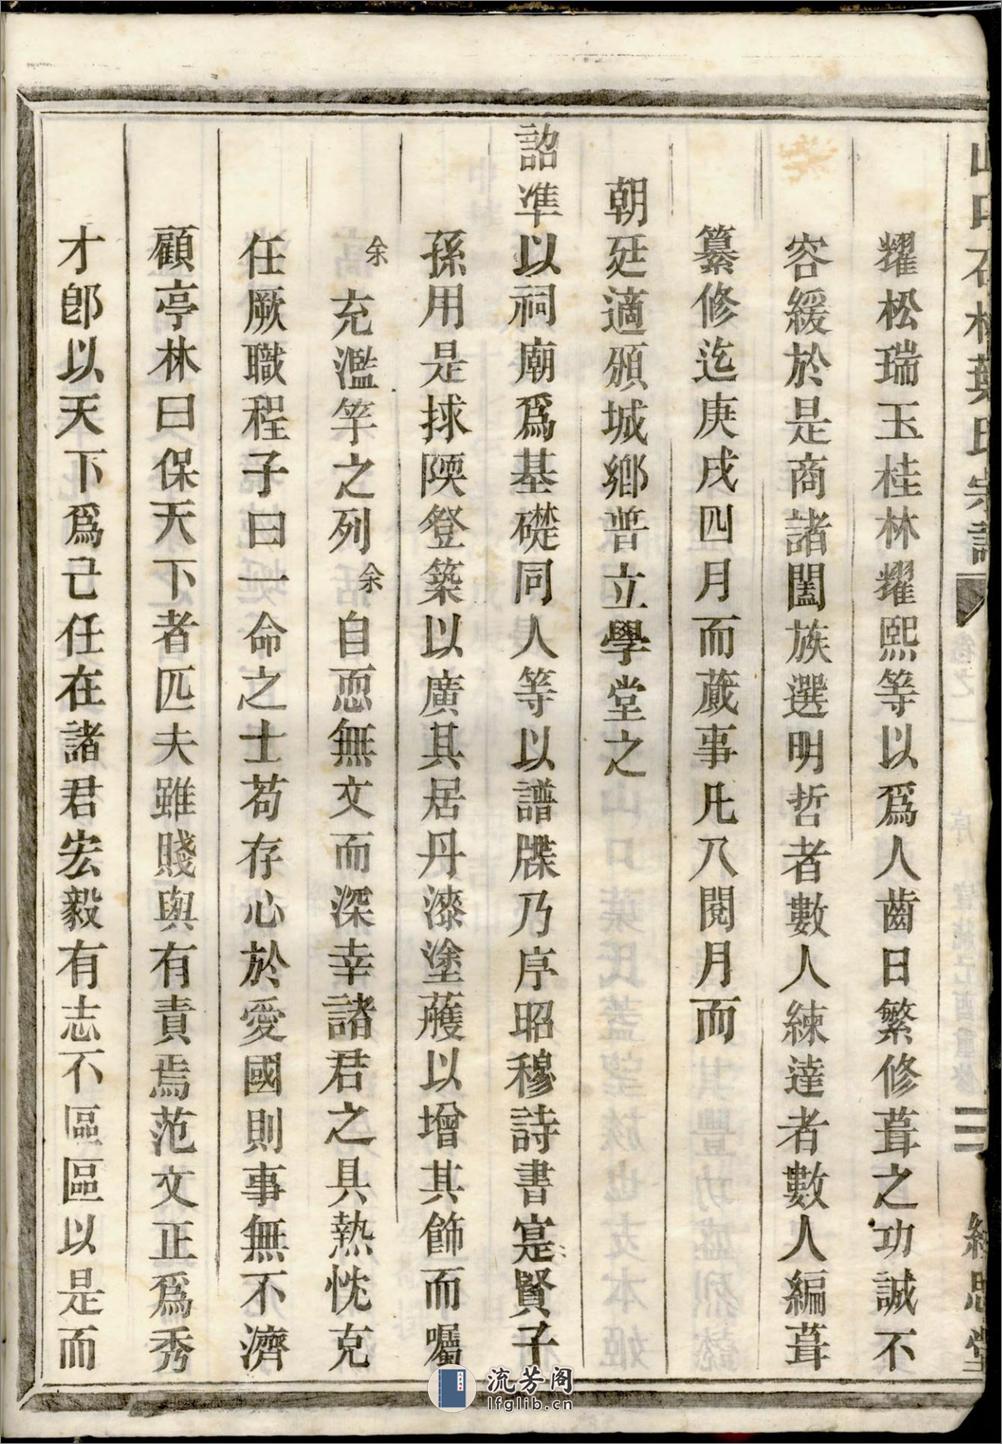 耀松瑞玉桂林耀熙等以爲人齒日繁修葺之功誠不
容緩於是商諸闔族選明哲者數人練達者數人編葺
纂修迄庚戌四月而蕆事凡八閱月而
朝廷適頒城鄉普立學堂之
詔準以祠廟爲基礎同人等以譜牒乃序昭穆詩書寔賢子
孫用是捄陾登築以廣其居丹漆塗蔰以增其飾而囑
余充濫竽之列余自恧無文而深幸諸君之具熱忱克
任厥職程子曰一命之士苟存心於愛國則事無不濟
顧亭林曰保天下者匹夫雖賤與有責焉范文正爲秀
才郎以天下爲己任在諸君宏毅有志不區區以是而
氏宗譜
序 宣統己酉重修
二
流芳阁
lfglib.cn